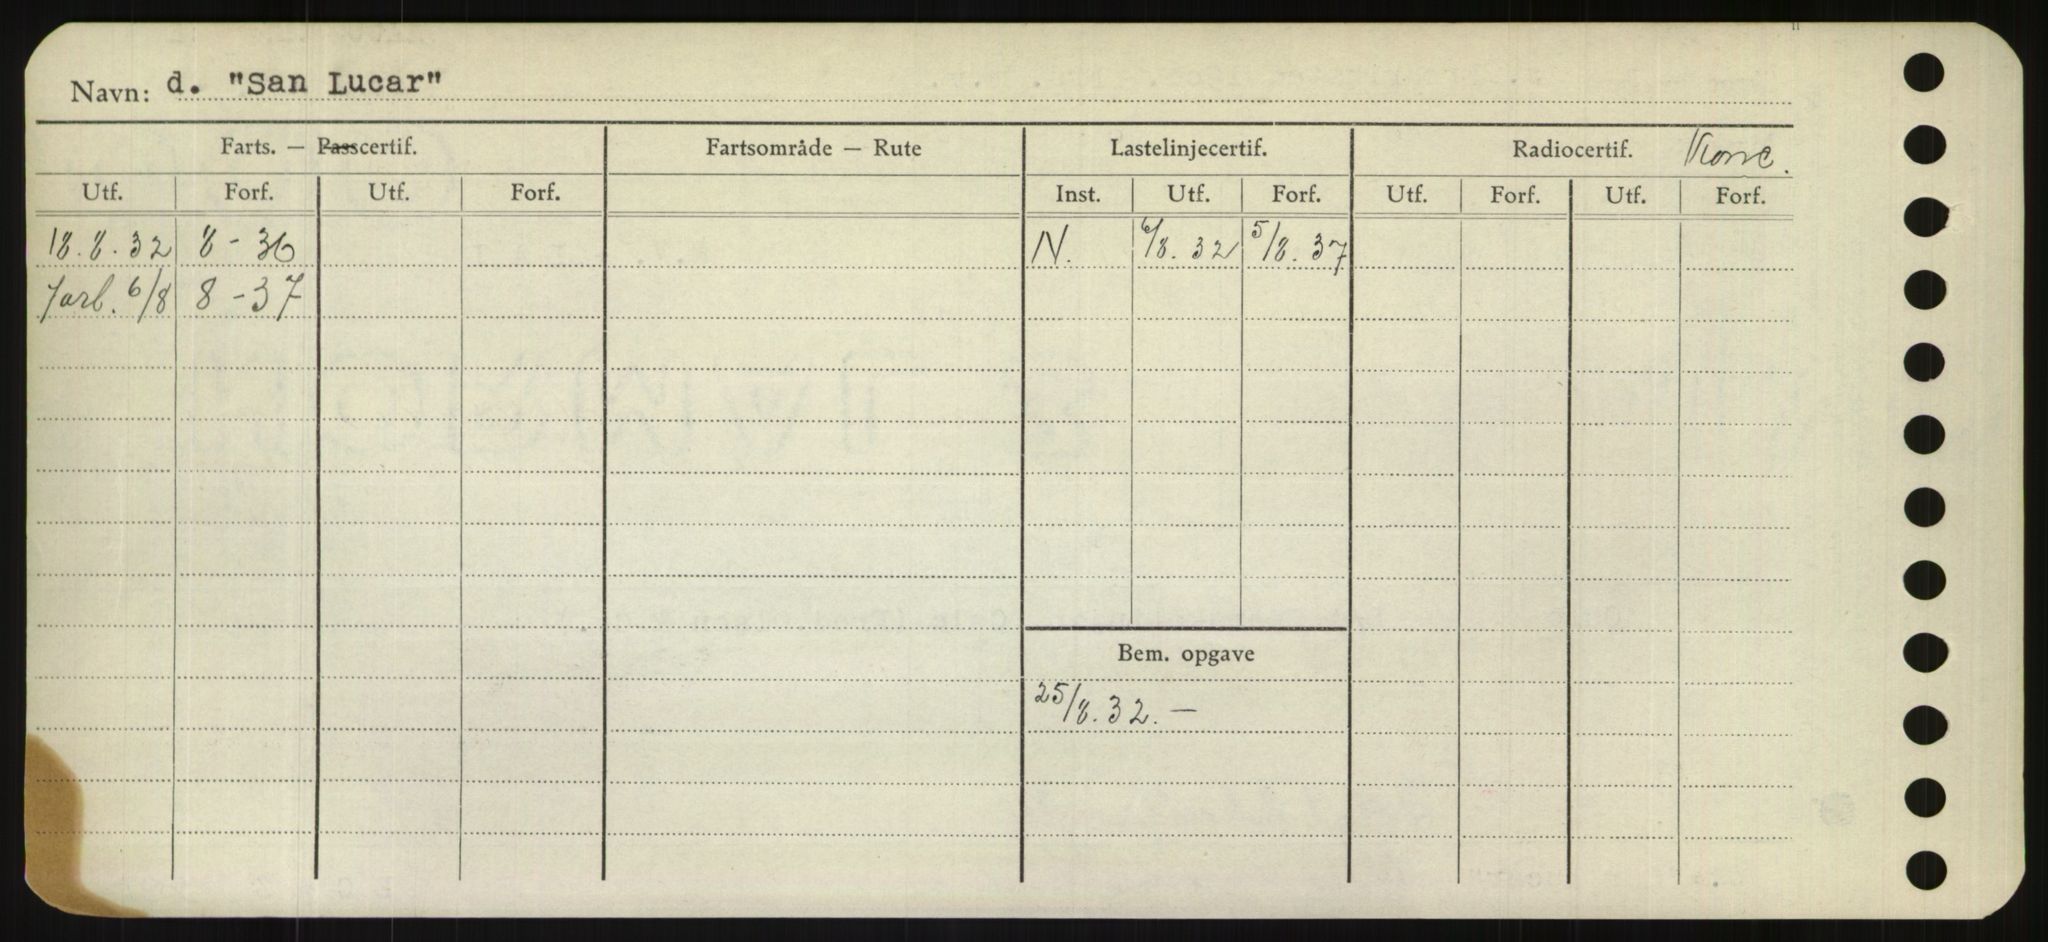 Navn: d. "San Lucar"
Farts. — Passcertif. Fartsområde — Rute Lastelinjecertif. Radiocertif. Konc.
Utf. Forf. Utf. Forf. Inst. Utf. Forf. Utf. Forf. Utf. Forf.
18.8.32 8-36 N. 6/8.32 5/8.37
forl. 6/8 8-37
Bem. opgave
25/8.32.—